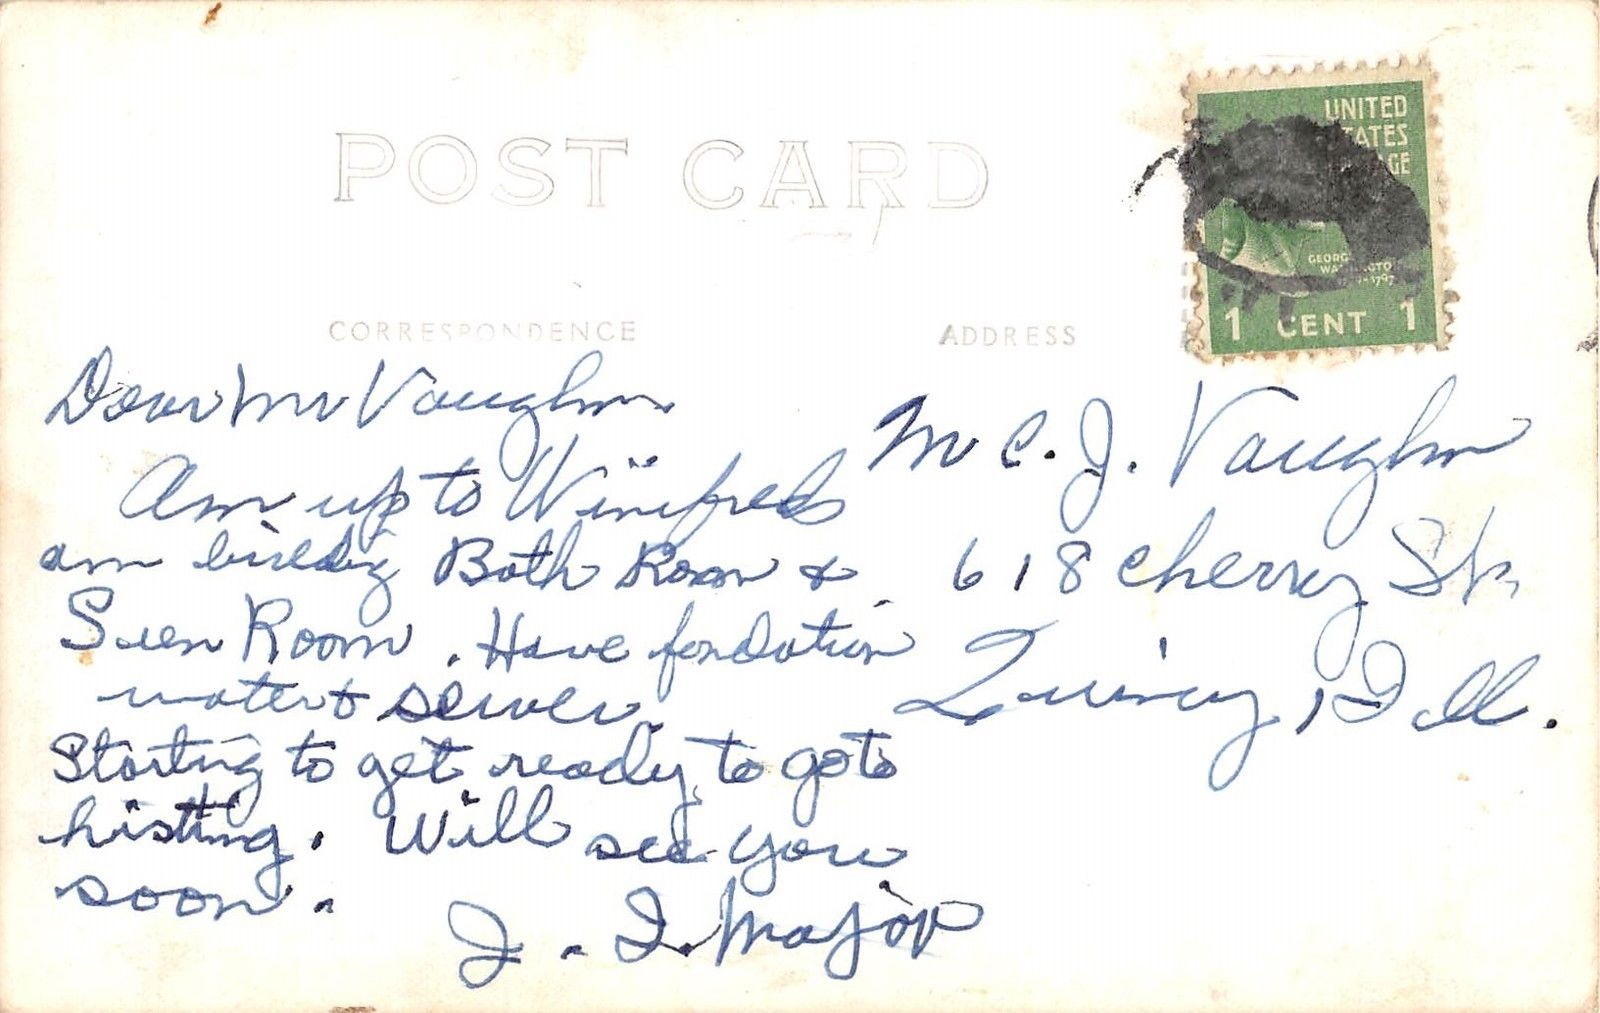 POST CARD
UNITED
STATES
POSTAGE
GEORGE
WASHINGTON
1 CENT 1
CORRESPONDENCE
ADDRESS
Dear Mr Vaughn
Am up to Winifreds
am building Bath Room &
Sun Room. Have fondation
water & sewer.
Starting to get ready to go to
histing. Will see you
soon.
J. I. Major
Mr C. J. Vaughn
618 Cherry St.
Quincy, Ill.